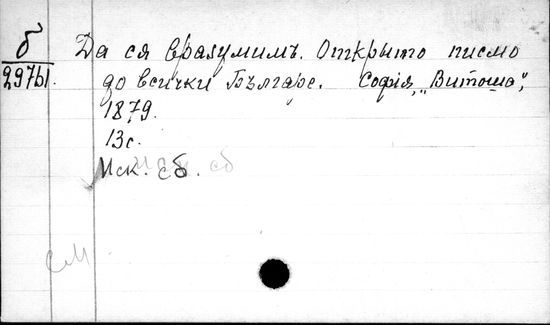 б
2976I.
Да ся вразумимъ. Открыто писмо
до всички Българе. Софія, „Витоша“,
1879.
13с.
Иск. сб. сб
см